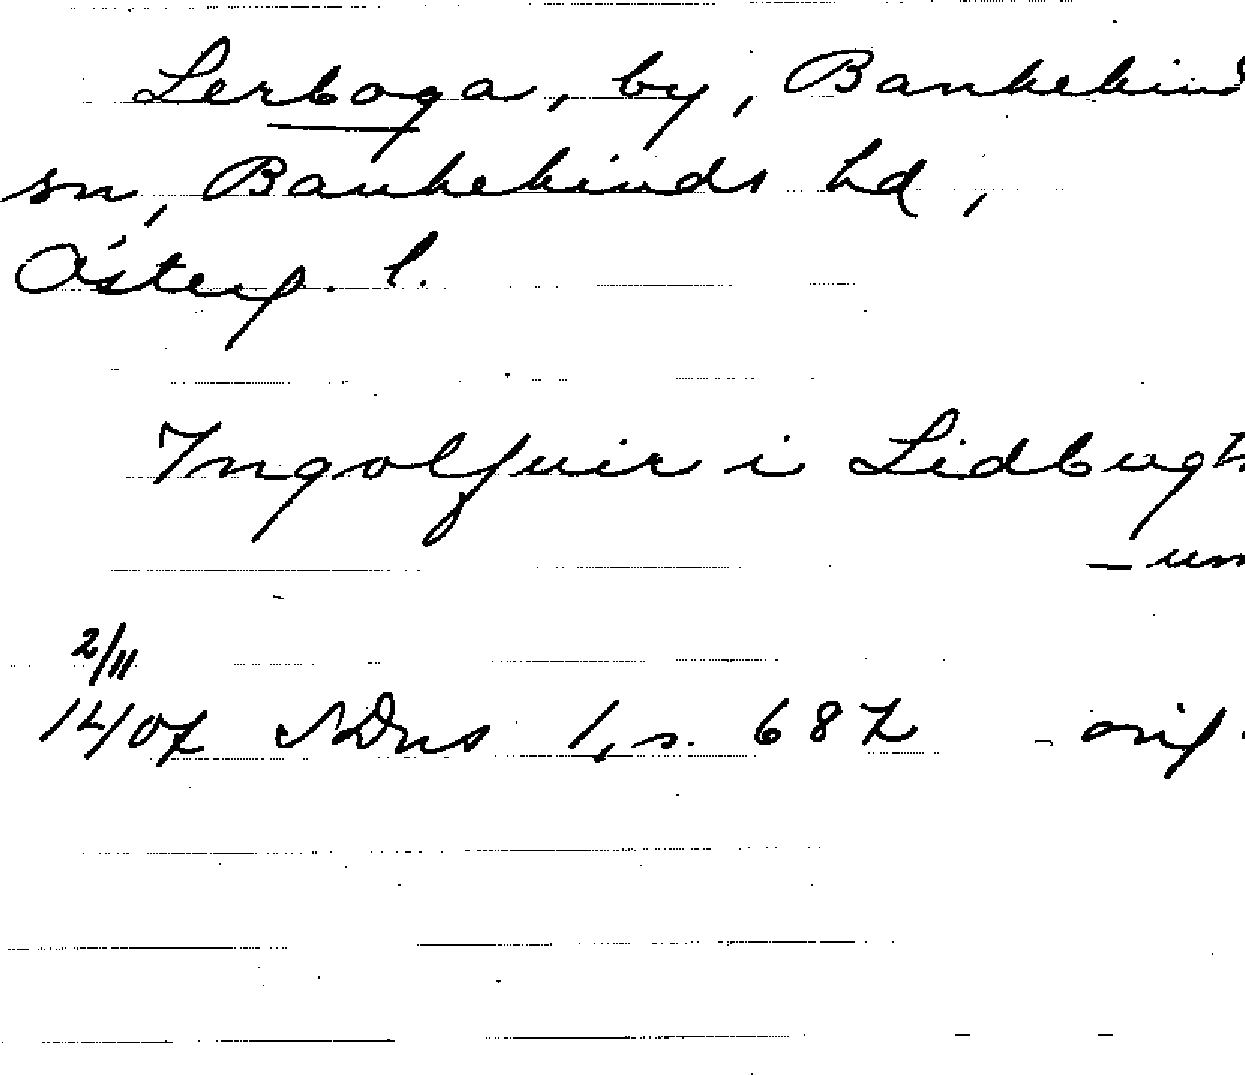 Lerboga, by, Bankekind
sn, Bankekinds hd,
Österg. l.
Ingolfuir i Lidbugh
- um
2/11
1407 SDns 1, s. 687 orig.